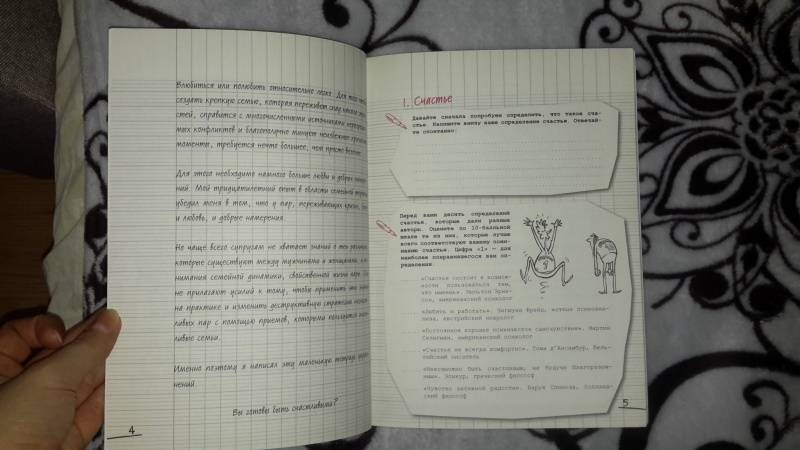 Влюбиться или полюбить относительно легко. Для того чтобы
создать крепкую семью, которая переживет
стей, справится с многочисленными источниками
мых конфликтов и благополучно минует неизбежные
моменты, требуется нечто большее, чем просто
Для этого необходимо намного больше любви и добрых
ний. Мой тридцатилетний опыт в области семейной
убедил меня в том, что у пар, переживающих кризис,
и любовь, и добрые намерения.
Но чаще всего супругам не хватает знаний о тех различиях,
которые существуют между мужчинами и женщинами,
нимания семейной динамики, свойственной жизни пары.
не прилагают усилий к тому, чтобы применить эти
на практике и изменить деструктивную стратегию
ливых пар с помощью приемов, которыми пользуются
ливые семьи.
Именно поэтому я написал эту маленькую тетрадь
нений.
Вы готовы быть счастливыми?
4
1. Счастье
Давайте сначала попробуем определить, что такое сча-
стье. Напишите внизу ваше определение счастья. Отвечай-
те спонтанно:
Перед вами десять определений
счастья, которые дали разные
авторы. Оцените по 10-балльной
шкале те из них, которые лучше
всего соответствуют вашему пони-
манию счастья. Цифра «1» — для
наиболее понравившегося вам оп-
ределения.
«Счастье состоит в возмож-
ности пользоваться тем,
что имеешь». Милтон Эрик-
сон, американский психолог
«Любить и работать». Зигмунд Фрейд, «отец» психоана-
лиза, австрийский невролог
«Постоянное хорошее психическое самочувствие». Мартин
Селигман, американский психолог
«Счастье не всегда комфортно». Тома д'Ансембур, бель-
гийский писатель
«Невозможно быть счастливым, не будучи благоразум-
ным». Эпикур, греческий философ
«Чувство активной радости». Барух Спиноза, голланд-
ский философ
5